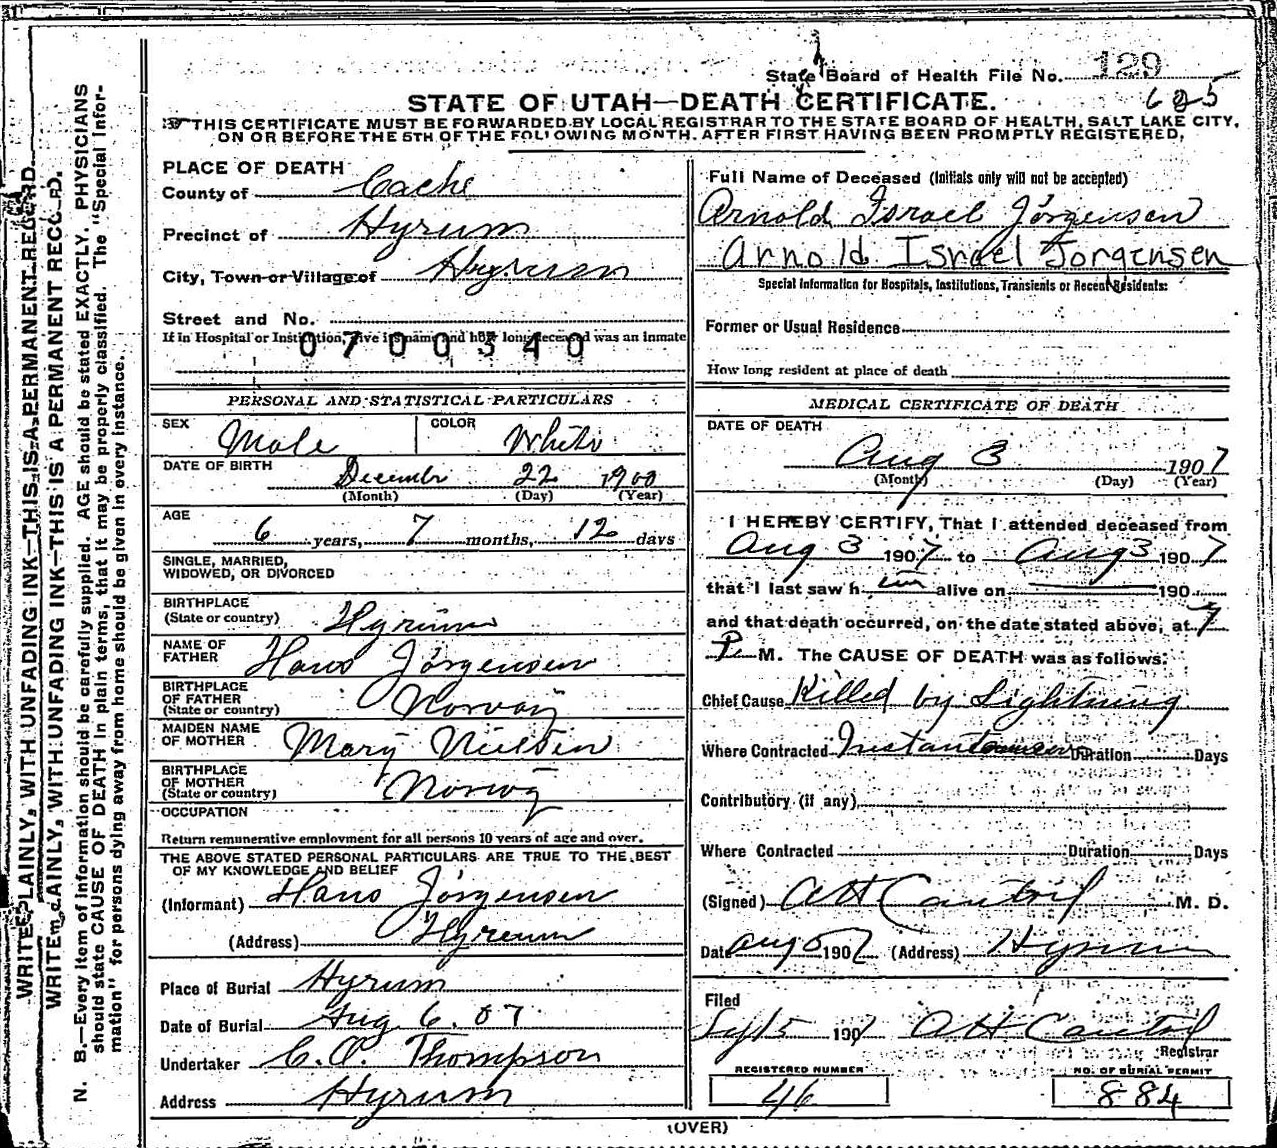 State Board of Health File No. 129
STATE OF UTAH—DEATH CERTIFICATE.
THIS CERTIFICATE MUST BE FORWARDED BY LOCAL REGISTRAR TO THE STATE BOARD OF HEALTH, SALT LAKE CITY,
ON OR BEFORE THE 5TH OF THE FOLLOWING MONTH. AFTER FIRST HAVING BEEN PROMPTLY REGISTERED.
WRITE PLAINLY, WITH UNFADING INK—THIS IS A PERMANENT RECORD.
WRITE PLAINLY, WITH UNFADING INK—THIS IS A PERMANENT RECORD.
N. B.—Every item of information should be carefully supplied. AGE should be stated EXACTLY. PHYSICIANS
should state CAUSE OF DEATH in plain terms, that it may be properly classified. The "Special Infor-
mation" for persons dying away from home should be given in every instance.
PLACE OF DEATH
County of Cache
Precinct of Hyrum
City, Town or Village of Hyrum
Street and No.
If in Hospital or Institution, give its name and how long deceased was an inmate
0700340
PERSONAL AND STATISTICAL PARTICULARS
SEX Male COLOR White
DATE OF BIRTH December 22 1900
(Month) (Day) (Year)
AGE 6 years, 7 months, 12 days
SINGLE, MARRIED,
WIDOWED, OR DIVORCED
BIRTHPLACE
(State or country) Hyrum
NAME OF
FATHER Hans Jörgensen
BIRTHPLACE
OF FATHER
(State or country) Norway
MAIDEN NAME
OF MOTHER Mary Nielsen
BIRTHPLACE
OF MOTHER
(State or country) Norway
OCCUPATION
Return remunerative employment for all persons 10 years of age and over.
THE ABOVE STATED PERSONAL PARTICULARS ARE TRUE TO THE BEST
OF MY KNOWLEDGE AND BELIEF
(Informant) Hans Jörgensen
(Address) Hyreum
Place of Burial Hyrum
Date of Burial Aug 6. 07
Undertaker C. O. Thompson
Address Hyrum
Full Name of Deceased (Initials only will not be accepted)
Arnold Israel Jörgensen
Arnold Israel Jorgensen
Special Information for Hospitals, Institutions, Transients or Recent Residents:
Former or Usual Residence
How long resident at place of death
MEDICAL CERTIFICATE OF DEATH
DATE OF DEATH
Aug 3 1907
(Month) (Day) (Year)
I HEREBY CERTIFY, That I attended deceased from
Aug 3 1907 to Aug 3 1907
that I last saw him alive on 190
and that death occurred, on the date stated above, at 7
P. M. The CAUSE OF DEATH was as follows:
Chief Cause Killed by Lightning
Where Contracted Instantaneous Duration Days
Contributory (if any)
Where Contracted Duration Days
(Signed) A H Cantril M. D.
Date Aug 5 1907 (Address) Hyrum
Filed
Sept 5 1907 A H Cantril
Registrar
REGISTERED NUMBER
46
NO. OF BURIAL PERMIT
884
(OVER)